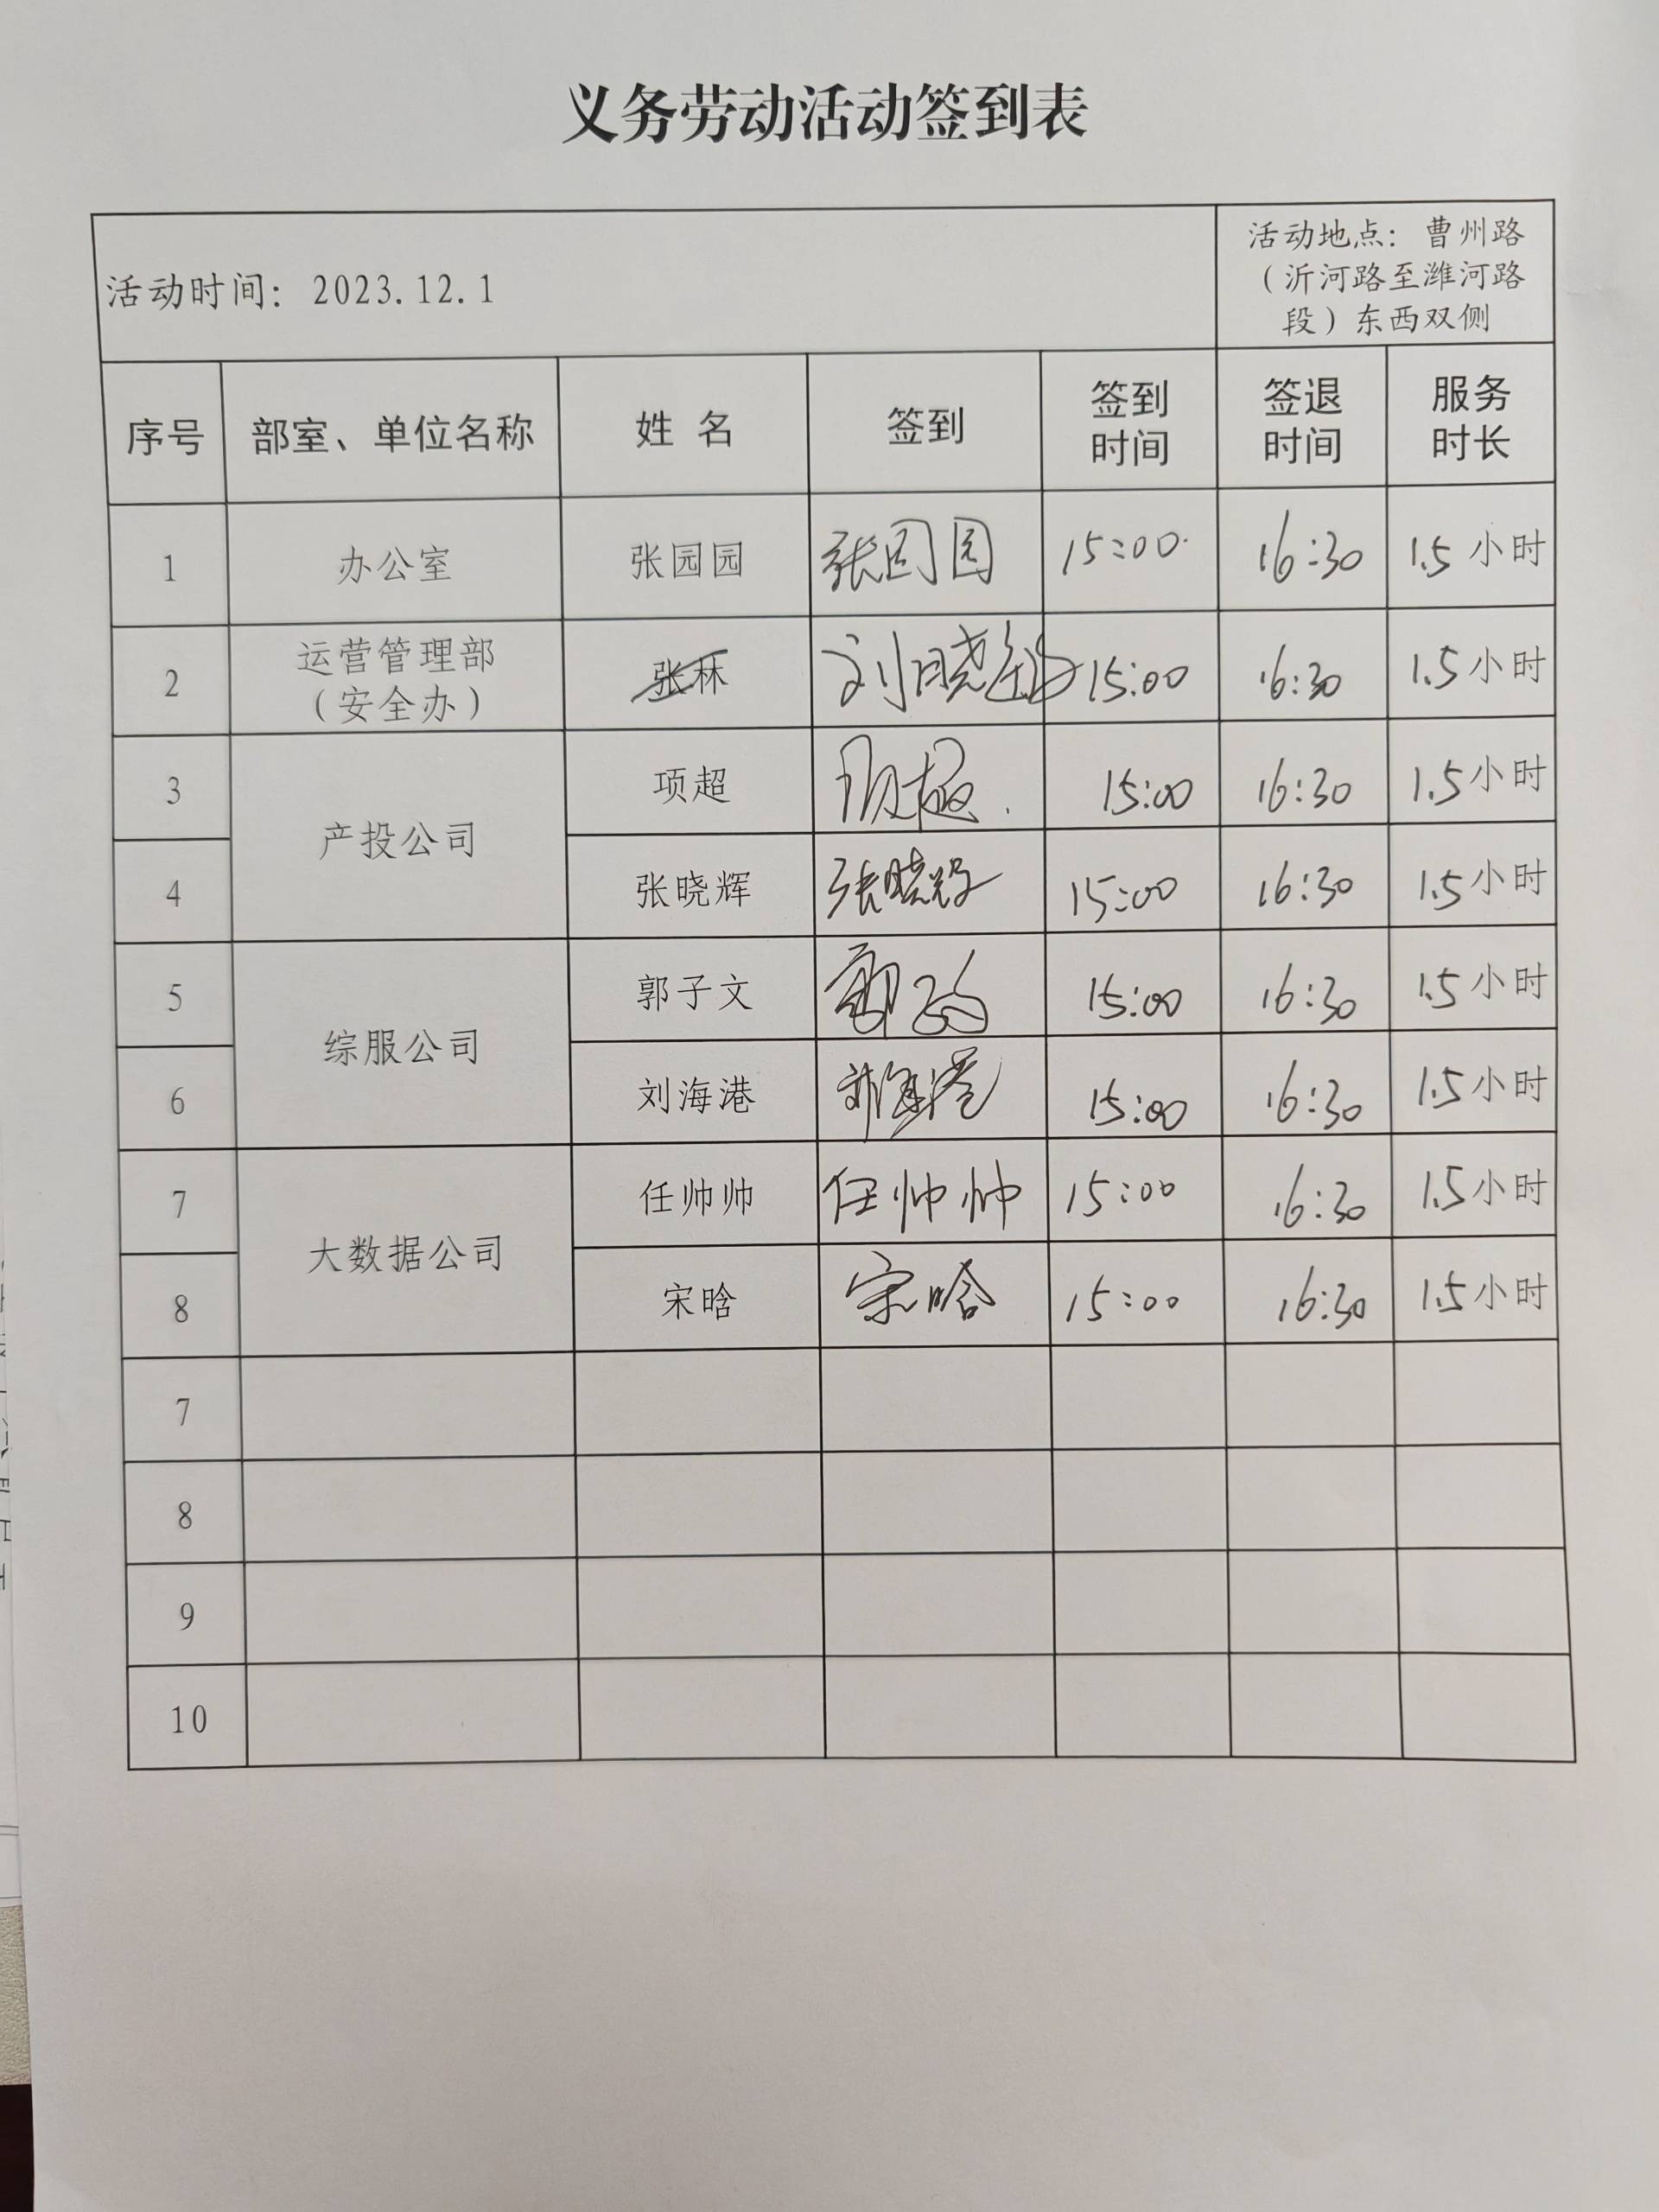 义务劳动活动签到表
活动时间：2023.12.1
活动地点：曹州路
（沂河路至潍河路
段）东西双侧
序号 部室、单位名称 姓 名 签到 签到时间 签退时间 服务时长
1 办公室 张园园 张园园 15:00 16:30 1.5 小时
2 运营管理部（安全办） 张林 刘晓 15:00 16:30 1.5 小时
3 产投公司 项超 项超 15:00 16:30 1.5 小时
4 张晓辉 张晓辉 15:00 16:30 1.5 小时
5 综服公司 郭子文 郭子文 15:00 16:30 1.5 小时
6 刘海港 刘海港 15:00 16:30 1.5 小时
7 大数据公司 任帅帅 任帅帅 15:00 16:30 1.5 小时
8 宋晗 宋晗 15:00 16:30 1.5 小时
7
8
9
10